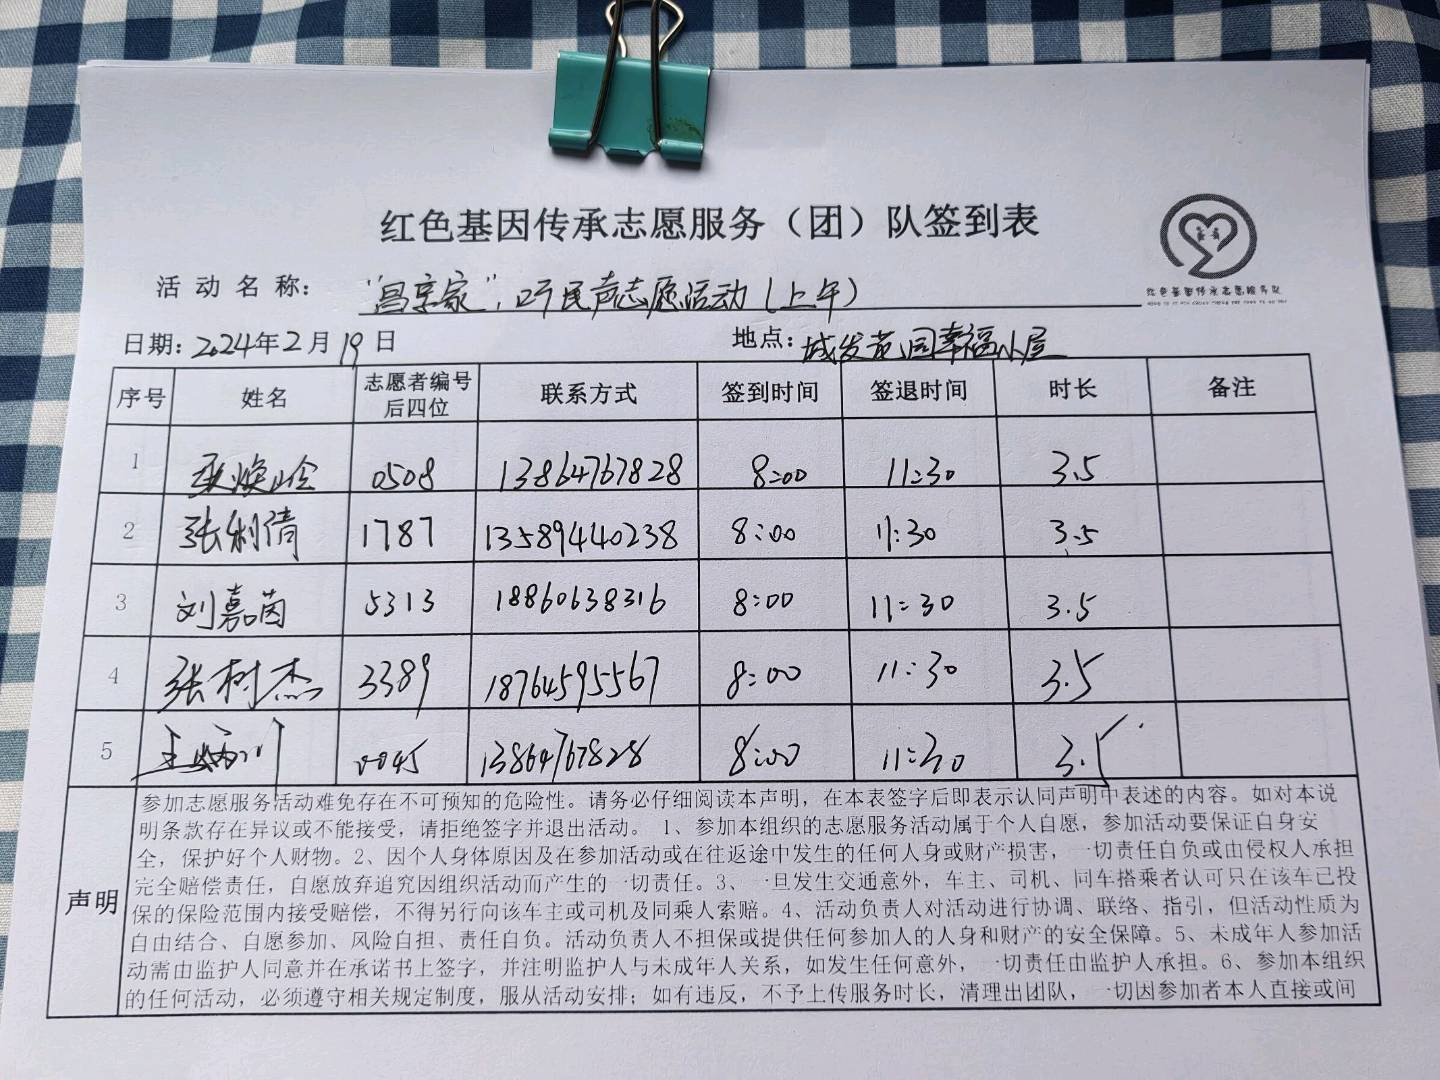 红色基因传承志愿服务（团）队签到表
红色基因传承志愿服务队
活动名称： “昌享家”，听民声志愿活动（上午）
日期：2024年2月19日 地点：城发花园幸福小屋
序号 姓名 志愿者编号后四位 联系方式 签到时间 签退时间 时长 备注
1 0508 13864767828 8:00 11:30 3.5
2 张利倩 1787 13589440238 8:00 11:30 3.5
3 刘嘉茵 5313 18860638316 8:00 11:30 3.5
4 张树杰 3389 18764595567 8:00 11:30 3.5
5 王 川 0045 13864767828 8:00 11:30 3.5
声明
参加志愿服务活动难免存在不可预知的危险性。请务必仔细阅读本声明，在本表签字后即表示认同声明中表述的内容。如对本说
明条款存在异议或不能接受，请拒绝签字并退出活动。 1、参加本组织的志愿服务活动属于个人自愿，参加活动要保证自身安
全，保护好个人财物。2、因个人身体原因及在参加活动或在往返途中发生的任何人身或财产损害，一切责任自负或由侵权人承担
完全赔偿责任，自愿放弃追究因组织活动而产生的一切责任。3、一旦发生交通意外，车主、司机、同车搭乘者认可只在该车已投
保的保险范围内接受赔偿，不得另行向该车主或司机及同乘人索赔。4、活动负责人对活动进行协调、联络、指引，但活动性质为
自由结合、自愿参加、风险自担、责任自负。活动负责人不担保或提供任何参加人的人身和财产的安全保障。5、未成年人参加活
动需由监护人同意并在承诺书上签字，并注明监护人与未成年人关系，如发生任何意外，一切责任由监护人承担。6、参加本组织
的任何活动，必须遵守相关规定制度，服从活动安排；如有违反，不予上传服务时长，清理出团队，一切因参加者本人直接或间